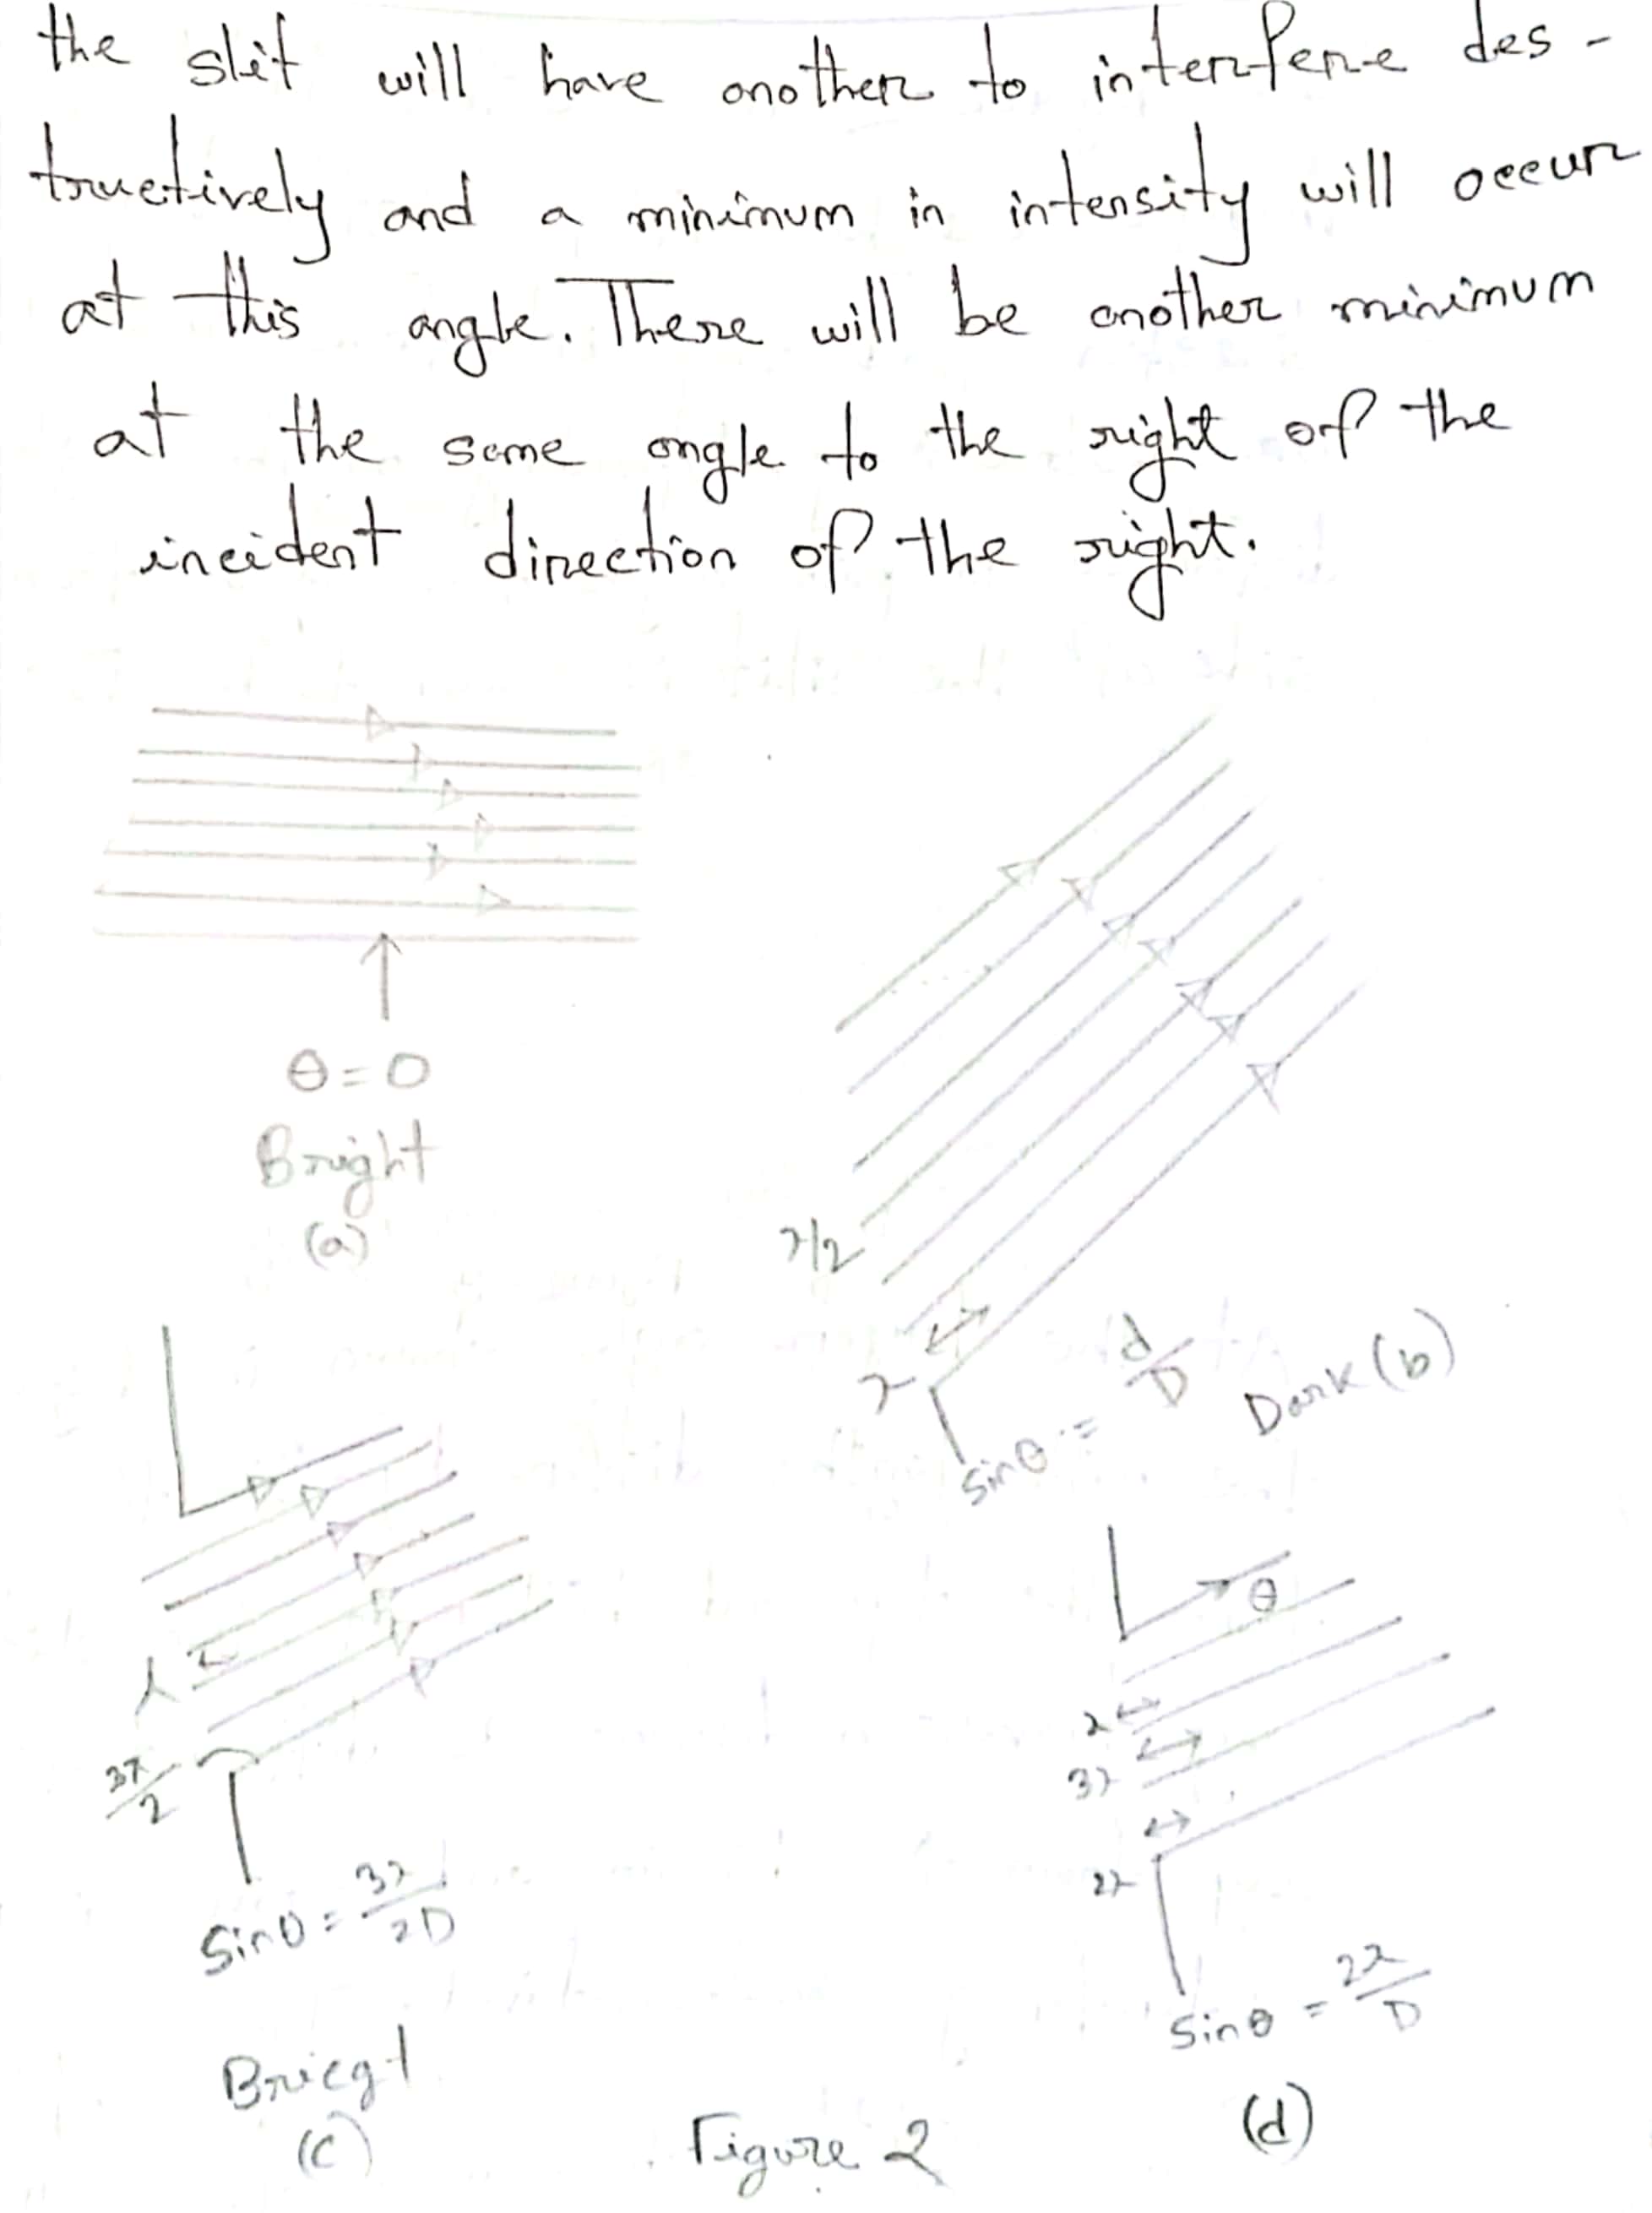 the slit will have another to interfere des-
tructively and a minimum in intensity will occur
at this angle. There will be another minimum
at the same angle to the right of the
incident direction of the right.
θ = 0
Bright
(a)
λ/2
λ
sinθ = d/D Dark (b)
λ
3λ/2
sinθ = 3λ/2D
Briegt
(c)
θ
λ
3λ
2λ
sinθ = 2λ/D
(d)
Figure 2